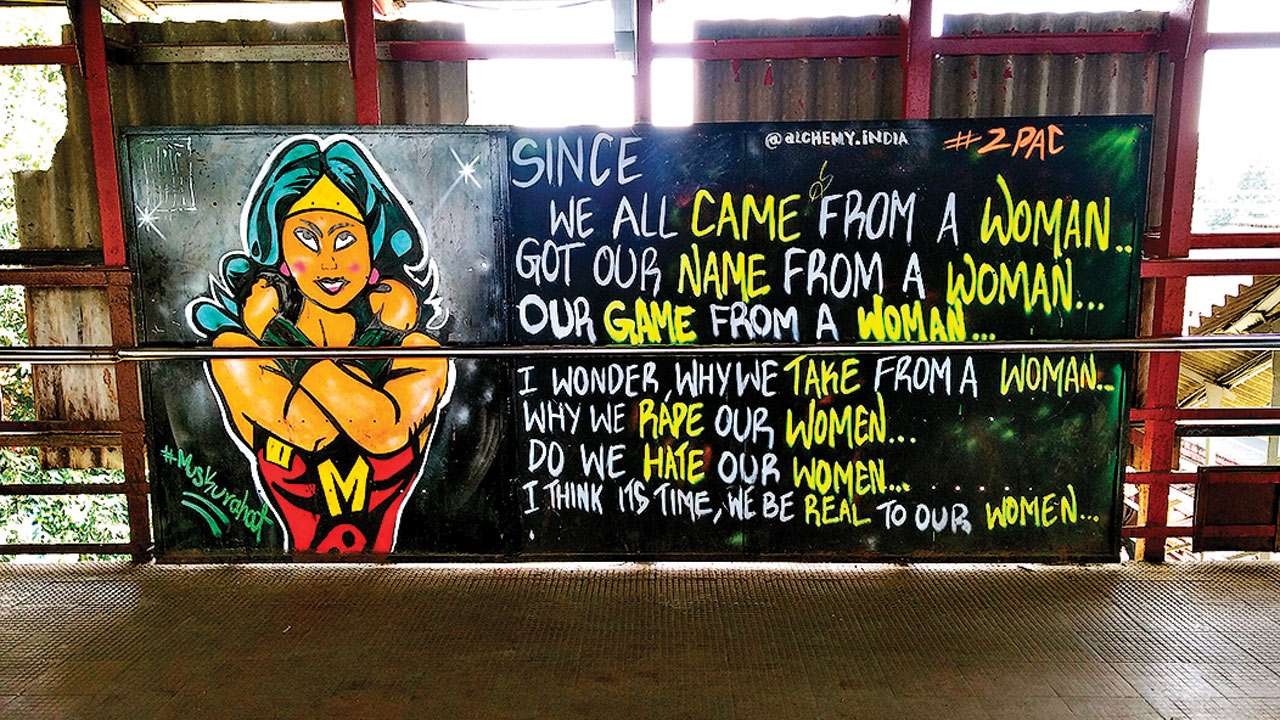 @ALCHEMY.INDIA
#2PAC
SINCE
WE ALL CAME FROM A WOMAN..
GOT OUR NAME FROM A WOMAN...
OUR GAME FROM A WOMAN...
I WONDER, WHY WE TAKE FROM A WOMAN...
WHY WE RAPE OUR WOMEN...
DO WE HATE OUR WOMEN...
I THINK ITS TIME, WE BE REAL TO OUR WOMEN...
M
#Muskurahat